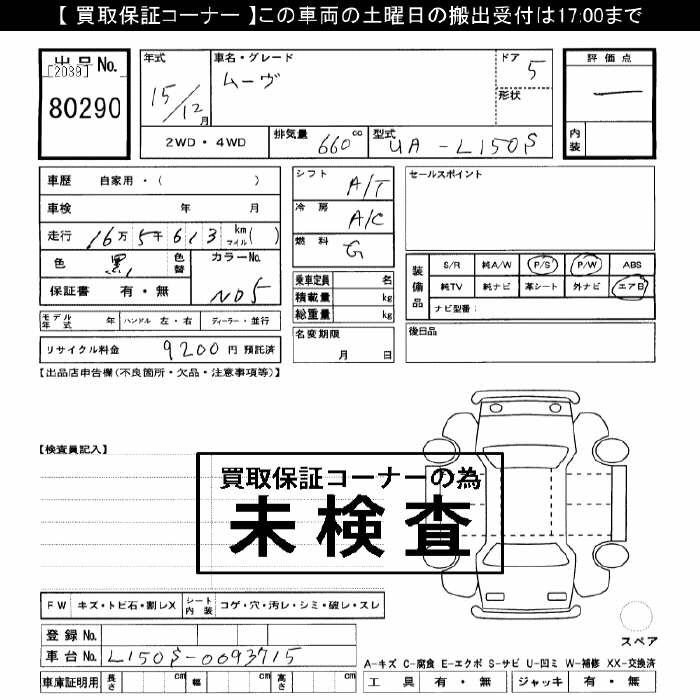 【 買取保証コーナー 】この車両の土曜日の搬出受付は17:00まで
出品No.
[2039]
80290
年式
15/12月
車名・グレード
ムーヴ
ドア
5
形状
評価点
一
内装
2WD・4WD
排気量
660cc
型式
UA-L150S
車歴 自家用・( )
車検 年 月
走行 16万5千613 km マイル( )
色 黒 色替
カラーNo.
N05
保証書 有・無
シフト A/T
冷房 A/C
燃料 G
セールスポイント
装備品
S/R 純A/W P/S P/W ABS
純TV 純ナビ 革シート 外ナビ エアB
ナビ型番:
乗車定員 名
積載量 kg
総重量 kg
モデル年式 年 ハンドル 左・右 ディーラー・並行
名変期限
月 日
後日品
リサイクル料金 9200円 預託済
【出品店申告欄(不良箇所・欠品・注意事項等)】
【検査員記入】
買取保証コーナーの為
未検査
FW キズ・トビ石・割レX シート内装 コゲ・穴・汚レ・シミ・破レ・スレ
スペア
登録No.
車台No. L150S-0093715
車庫証明用 長さ cm 幅 cm 高さ cm
A-キズ C-腐食 E-エクボ S-サビ U-凹ミ W-補修 XX-交換済
工具 有・無 ジャッキ 有・無